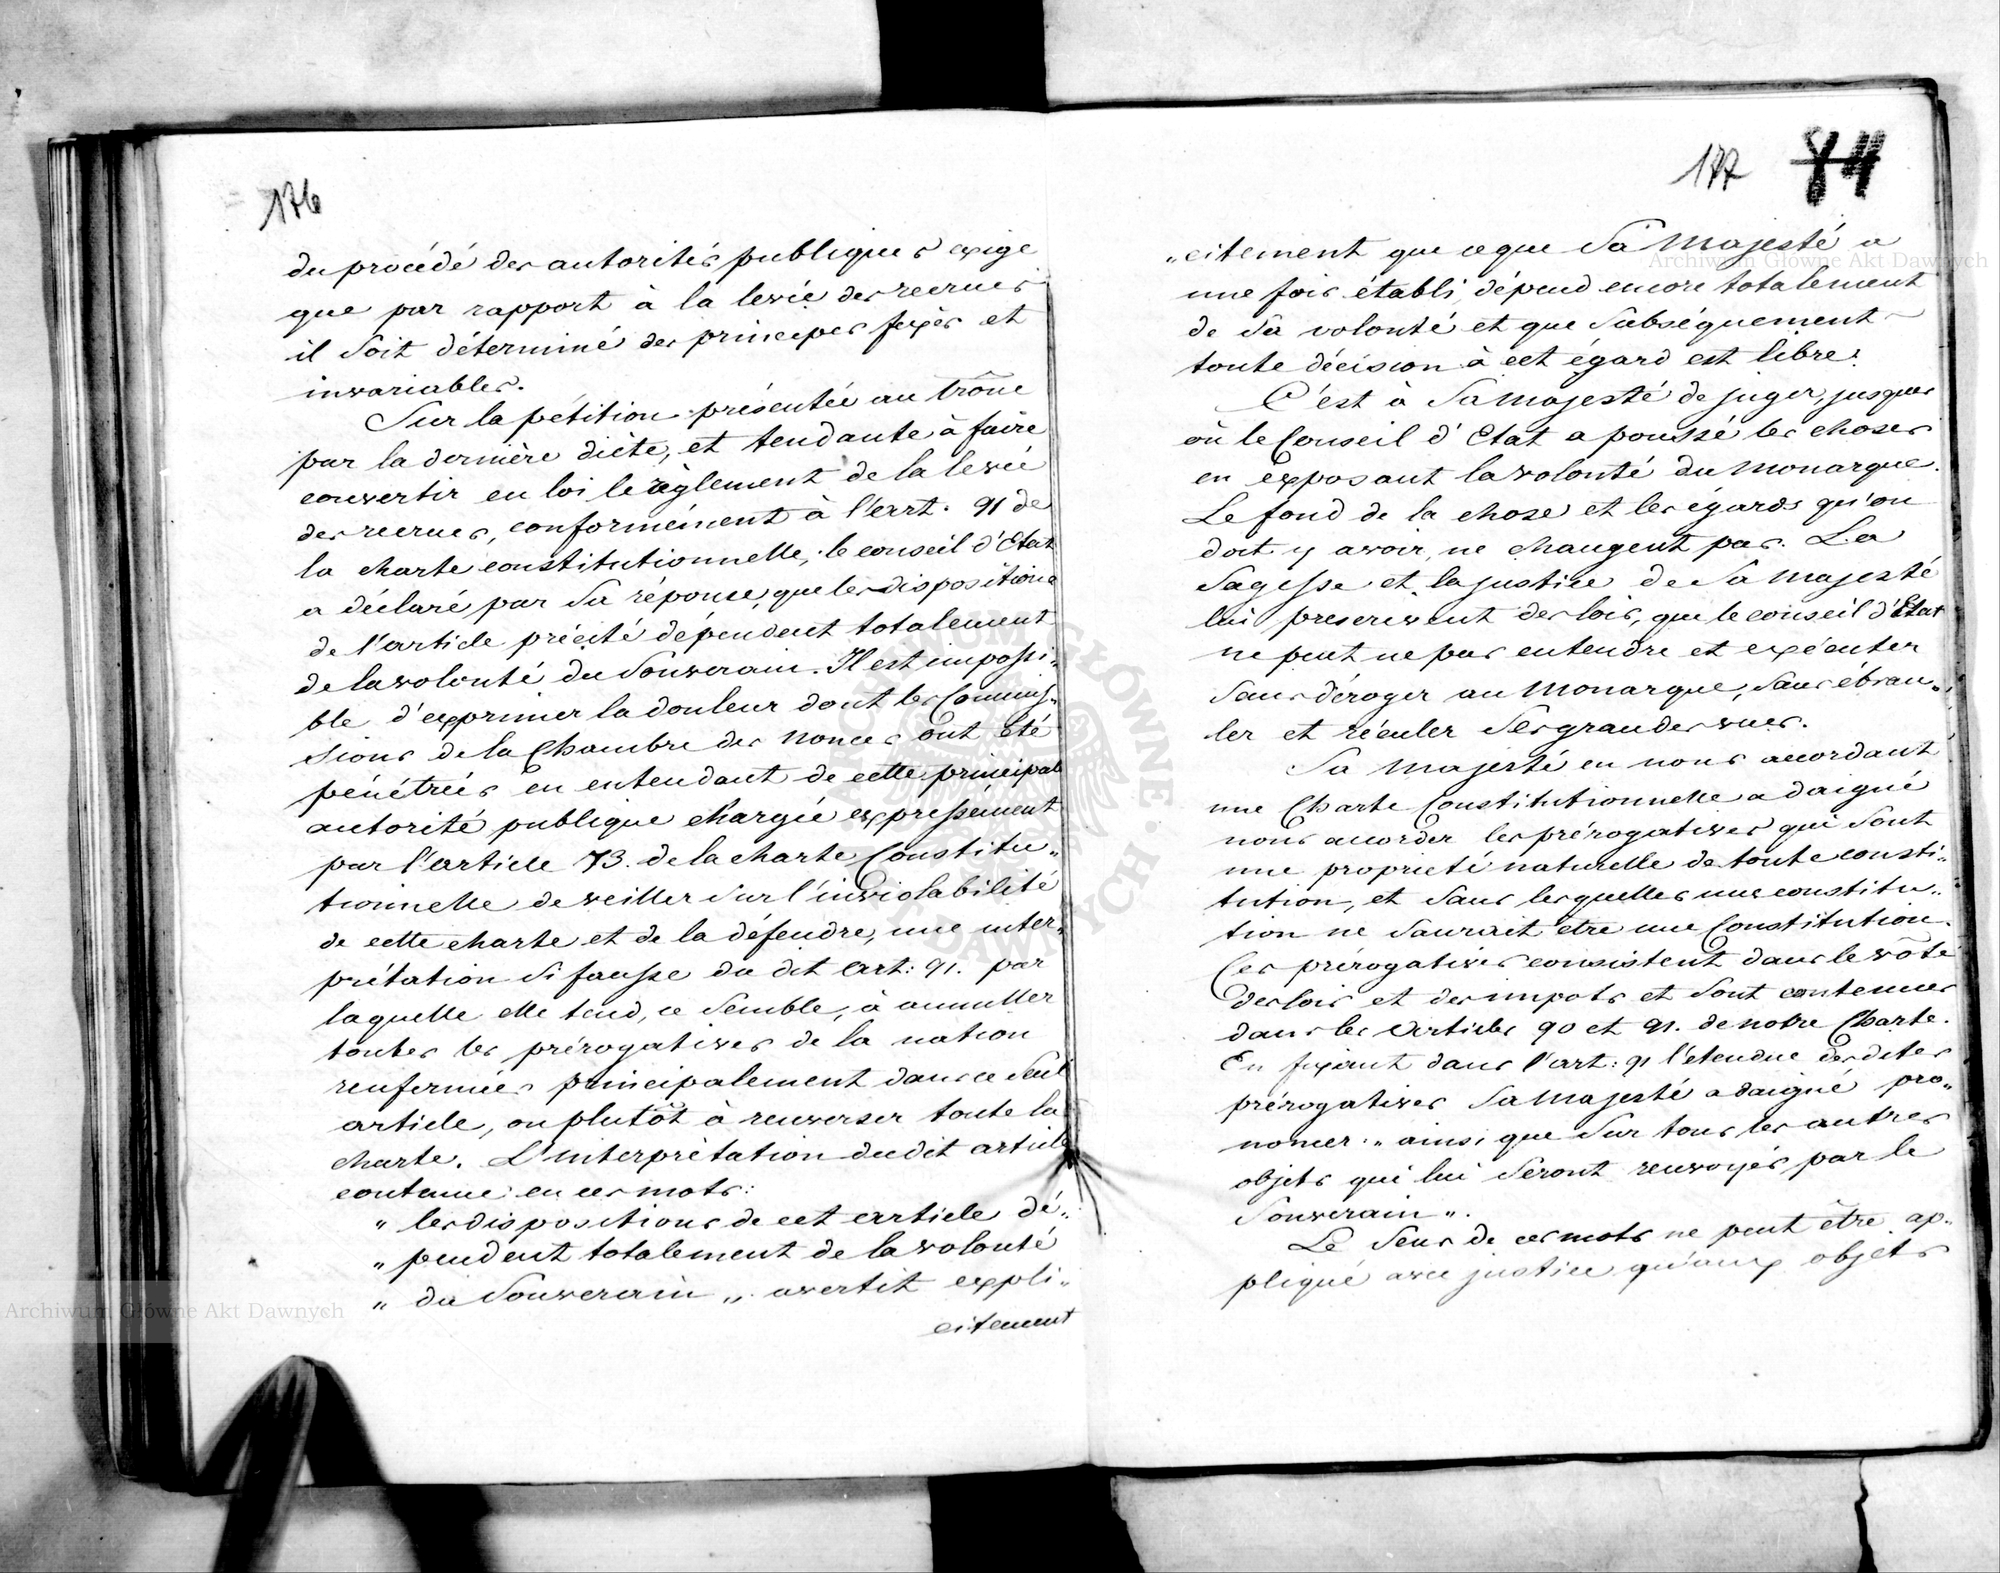 176
du procédé des autorités publiques exige
que par rapport à la levée des recrues
il soit déterminé des principes fixés et
invariables.
Sur la pétition présentée au trône
par la dernière diète, et tendante à faire
convertir en loi le règlement de la levée
des recrues, conformément à l'art. 91 de
la charte constitutionnelle, le conseil d'Etat
a déclaré par sa réponse, que les dispositions
de l'article précité dépendent totalement
de la volonté du Souverain. Il est impossi„
ble d'exprimer la douleur dont les Commis„
sions de la Chambre des nonces ont été
pénétrées en entendant de cette principale
autorité publique chargée expressément
par l'article 73. de la charte Constitu„
tionnelle de veiller sur l'inviolabilité
de cette charte et de la défendre, une inter„
prétation si fausse du dit art: 91. par
laquelle elle tend, ce semble, à annuller
toutes les prérogatives de la nation
renfermées principalement dans ce seul
article, ou plutôt à renverser toute la
charte. L'interprétation du dit article
contenue en ces mots:
" les dispositions de cet article dé„
" pendent totalement de la volonté
" du Souverain „ avertit expli„
citement
177 84
„citement que ce que Sa Majesté a
une fois établi, dépend encore totalement
de Sa volonté et que subséquement
toute décision à cet égard est libre.
C'est à Sa Majesté de juger, jusques
où le Conseil d'Etat a poussé les choses
en exposant la volonté du Monarque.
Le fond de la chose et les égards qu'on
doit y avoir, ne changent pas. La
Sagesse et la justice de Sa Majesté
lui prescrivent des lois, que le conseil d'Etat
ne peut ne pas entendre et exécuter
sans déroger au Monarque, sans ébran„
ler et réculer Ses grandes vues.
Sa Majesté en nous accordant
une Charte Constitutionnelle a daigné
nous accorder les prérogatives qui sont
une propriété naturelle de toute consti„
tution, et sans lesquelles une constitu„
tion ne saurait etre une Constitution.
Ces prérogatives consistent dans le vôte
des lois et des impots et sont contenues
dans les articles 90 et 91. de notre Charte.
En fixant dans l'art: 91 l'etendue des dites
prérogatives Sa Majesté a daigné pro„
noncer: „ ainsi que sur tous les autres
objets qui lui seront renvoyés par le
Souverain „.
Le sens de ces mots ne peut être ap„
pliqué avec justice qu'aux objets
Archiwum Główne Akt Dawnych
Archiwum Główne Akt Dawnych
ARCHIWUM GŁÓWNE AKT DAWNYCH